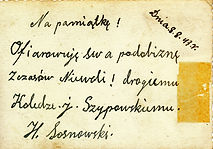 Na pamiątkę!
Dnia 8.8.47r.
Ofiarowuję swą podobiznę
Zczasów Niewoli! drogiemu
Koledze. J. Szypowskiemu.
H. Sosnowski.